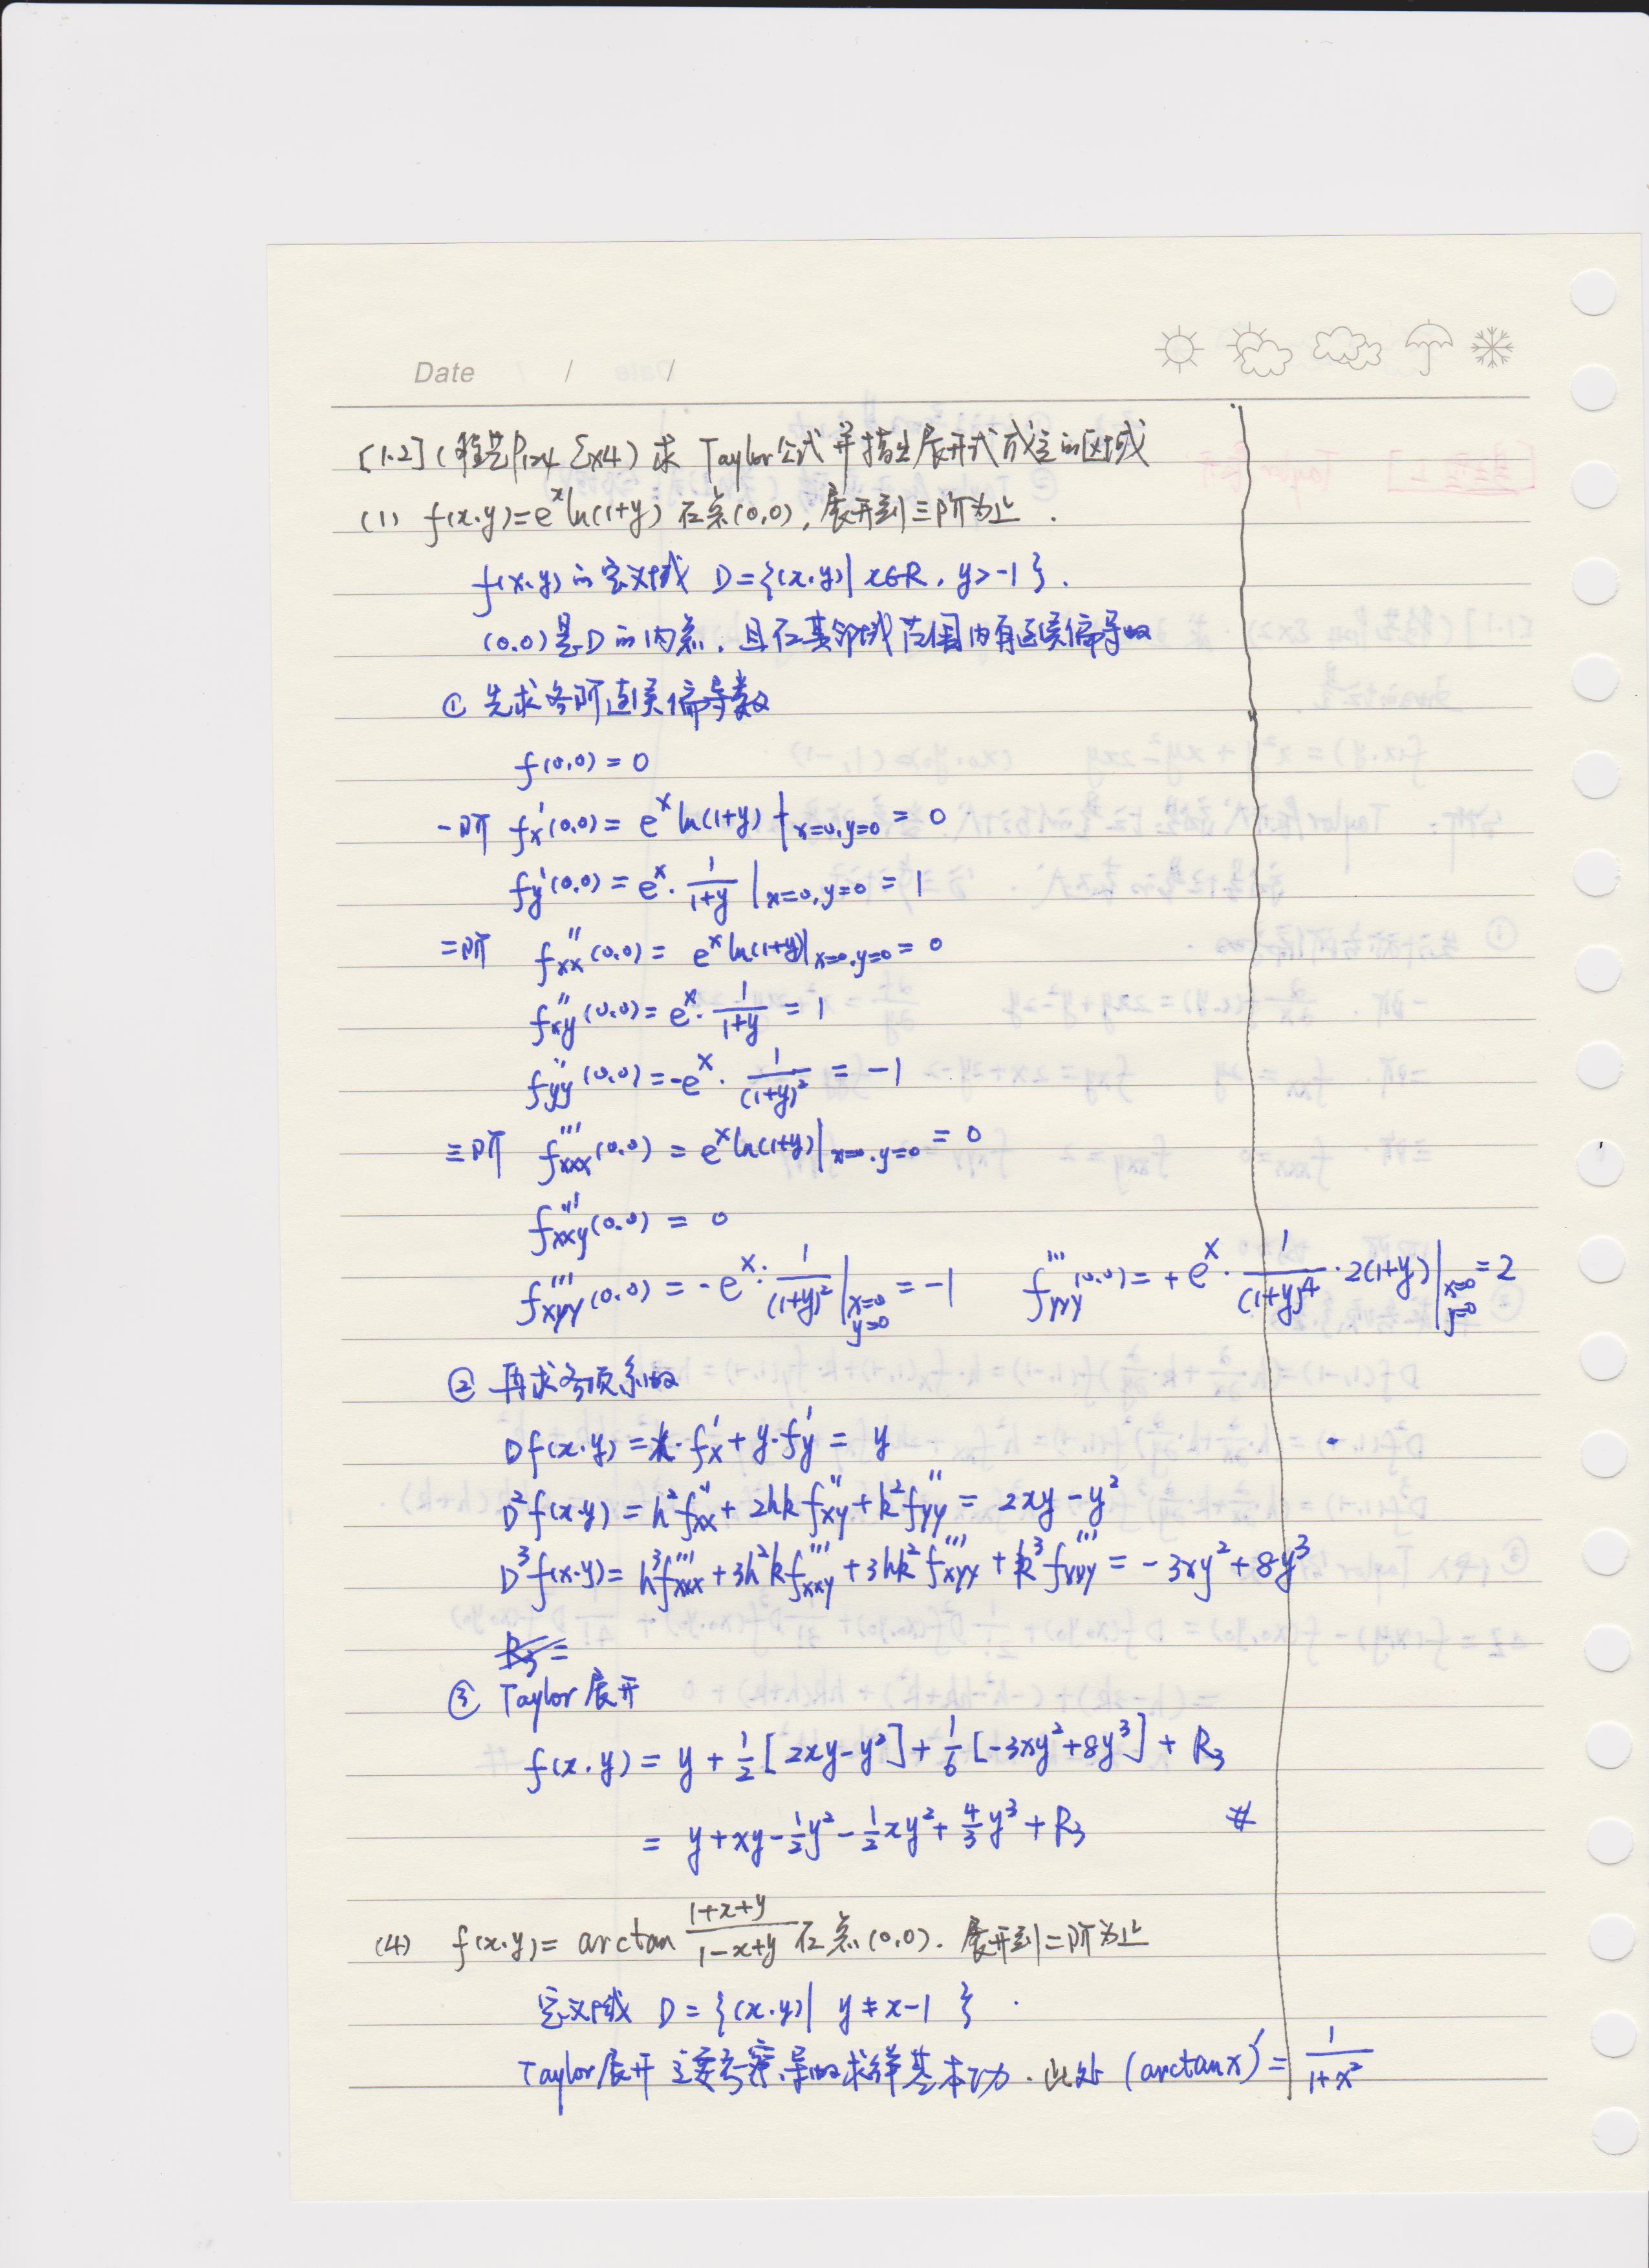 Date / /
[1.2] (程艺P124 Ex4) 求 Taylor公式并指出展开式成立的区域
(1) f(x.y)=e^x ln(1+y) 在点(0,0), 展开到三阶为止.
f(x.y)的定义域 D={(x.y)| x∈R, y>-1}.
(0.0)是D的内点. 且在其邻域范围内有连续偏导数
① 先求各阶连续偏导数
f(0,0)=0
一阶 f'x(0,0)= e^x ln(1+y) |x=0,y=0 = 0
f'y(0,0)= e^x · 1/(1+y) |x=0,y=0 = 1
二阶 f''xx(0,0)= e^x ln(1+y)|x=0.y=0 = 0
f''xy(0,0)= e^x · 1/(1+y) = 1
f''yy(0,0)= -e^x · 1/(1+y)² = -1
三阶 f'''xxx(0,0) = e^x ln(1+y)|x=0.y=0 = 0
f'''xxy(0,0) = 0
f'''xyy(0,0) = -e^x · 1/(1+y)² |x=0 y=0 = -1 f'''yyy(0,0) = + e^x · 1/(1+y)⁴ · 2(1+y) |x=0 y=0 = 2
② 再求各项系数
Df(x.y) = h· f'x + y· f'y = y
D²f(x.y) = h² f''xx + 2hk f''xy + k² f''yy = 2xy - y²
D³f(x.y) = h³ f'''xxx + 3h²k f'''xxy + 3hk² f'''xyy + k³ f'''yyy = -3xy² + 8y³
R₃ =
③ Taylor 展开
f(x.y) = y + 1/2 [2xy - y²] + 1/6 [-3xy² + 8y³] + R₃
= y + xy - 1/2 y² - 1/2 xy² + 4/3 y³ + R₃ #
(4) f(x.y) = arctan (1+x+y)/(1-x+y) 在点(0,0). 展开到二阶为止
定义域 D = {(x.y)| y≠x-1}.
Taylor展开主要考察导数求解基本功. 此处 (arctanx)' = 1/(1+x²)